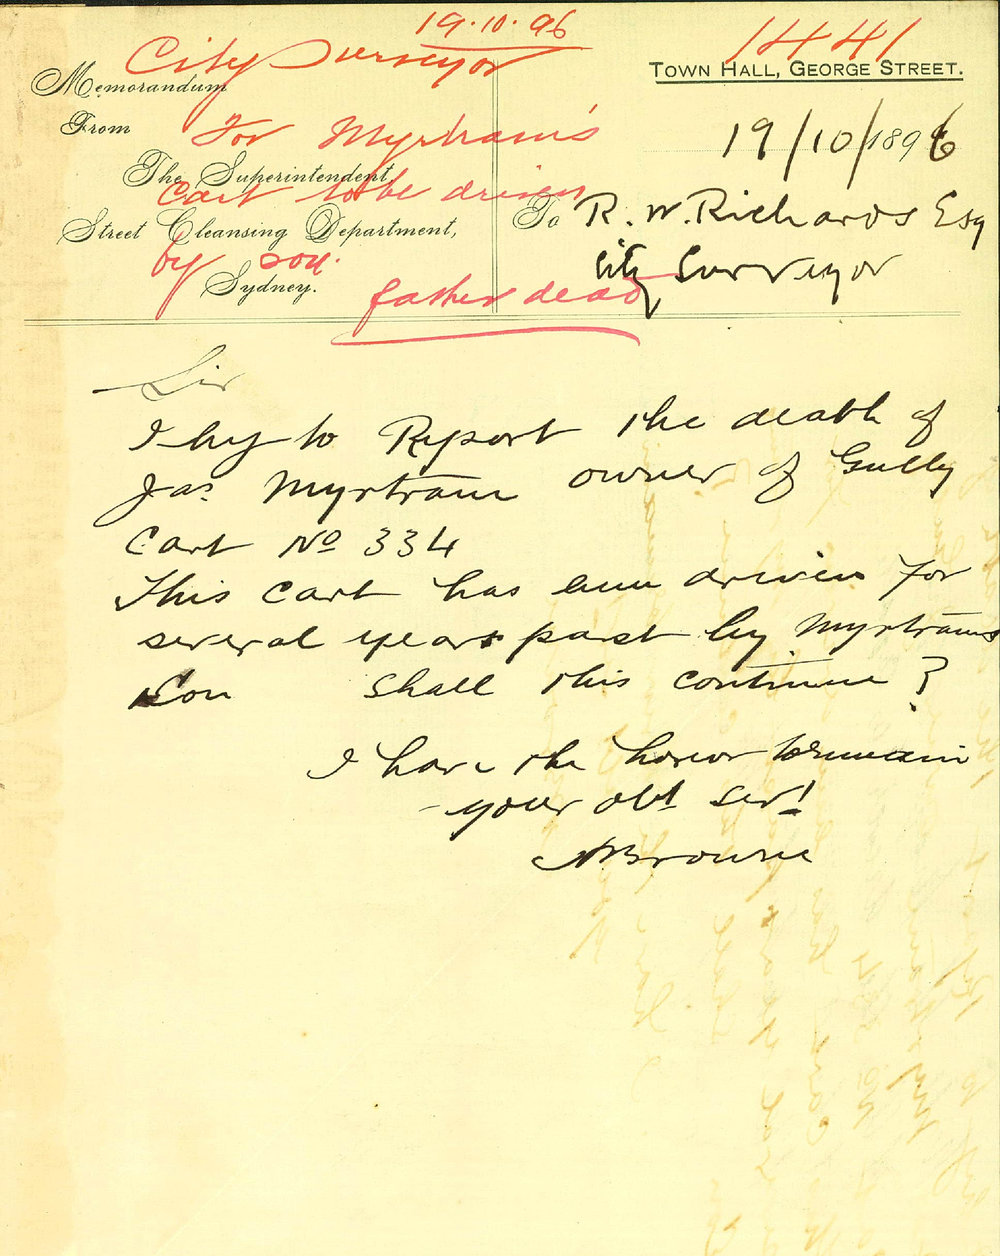 19.10.96
1441
City Surveyor
Memorandum
TOWN HALL, GEORGE STREET.
From
For Myrtram's
19/10/1896
The Superintendent
Cart to be driven
To R. W. Richards Esq
Street Cleansing Department,
by son.
City Surveyor
Sydney.
father dead
Sir
I beg to Report the death of
Jas. Myrtram owner of Gully
Cart No 334
This cart has been driven for
several years past by Myrtrams
Son shall this continue ?
I have the honor to remain
your obt servt
A Browne